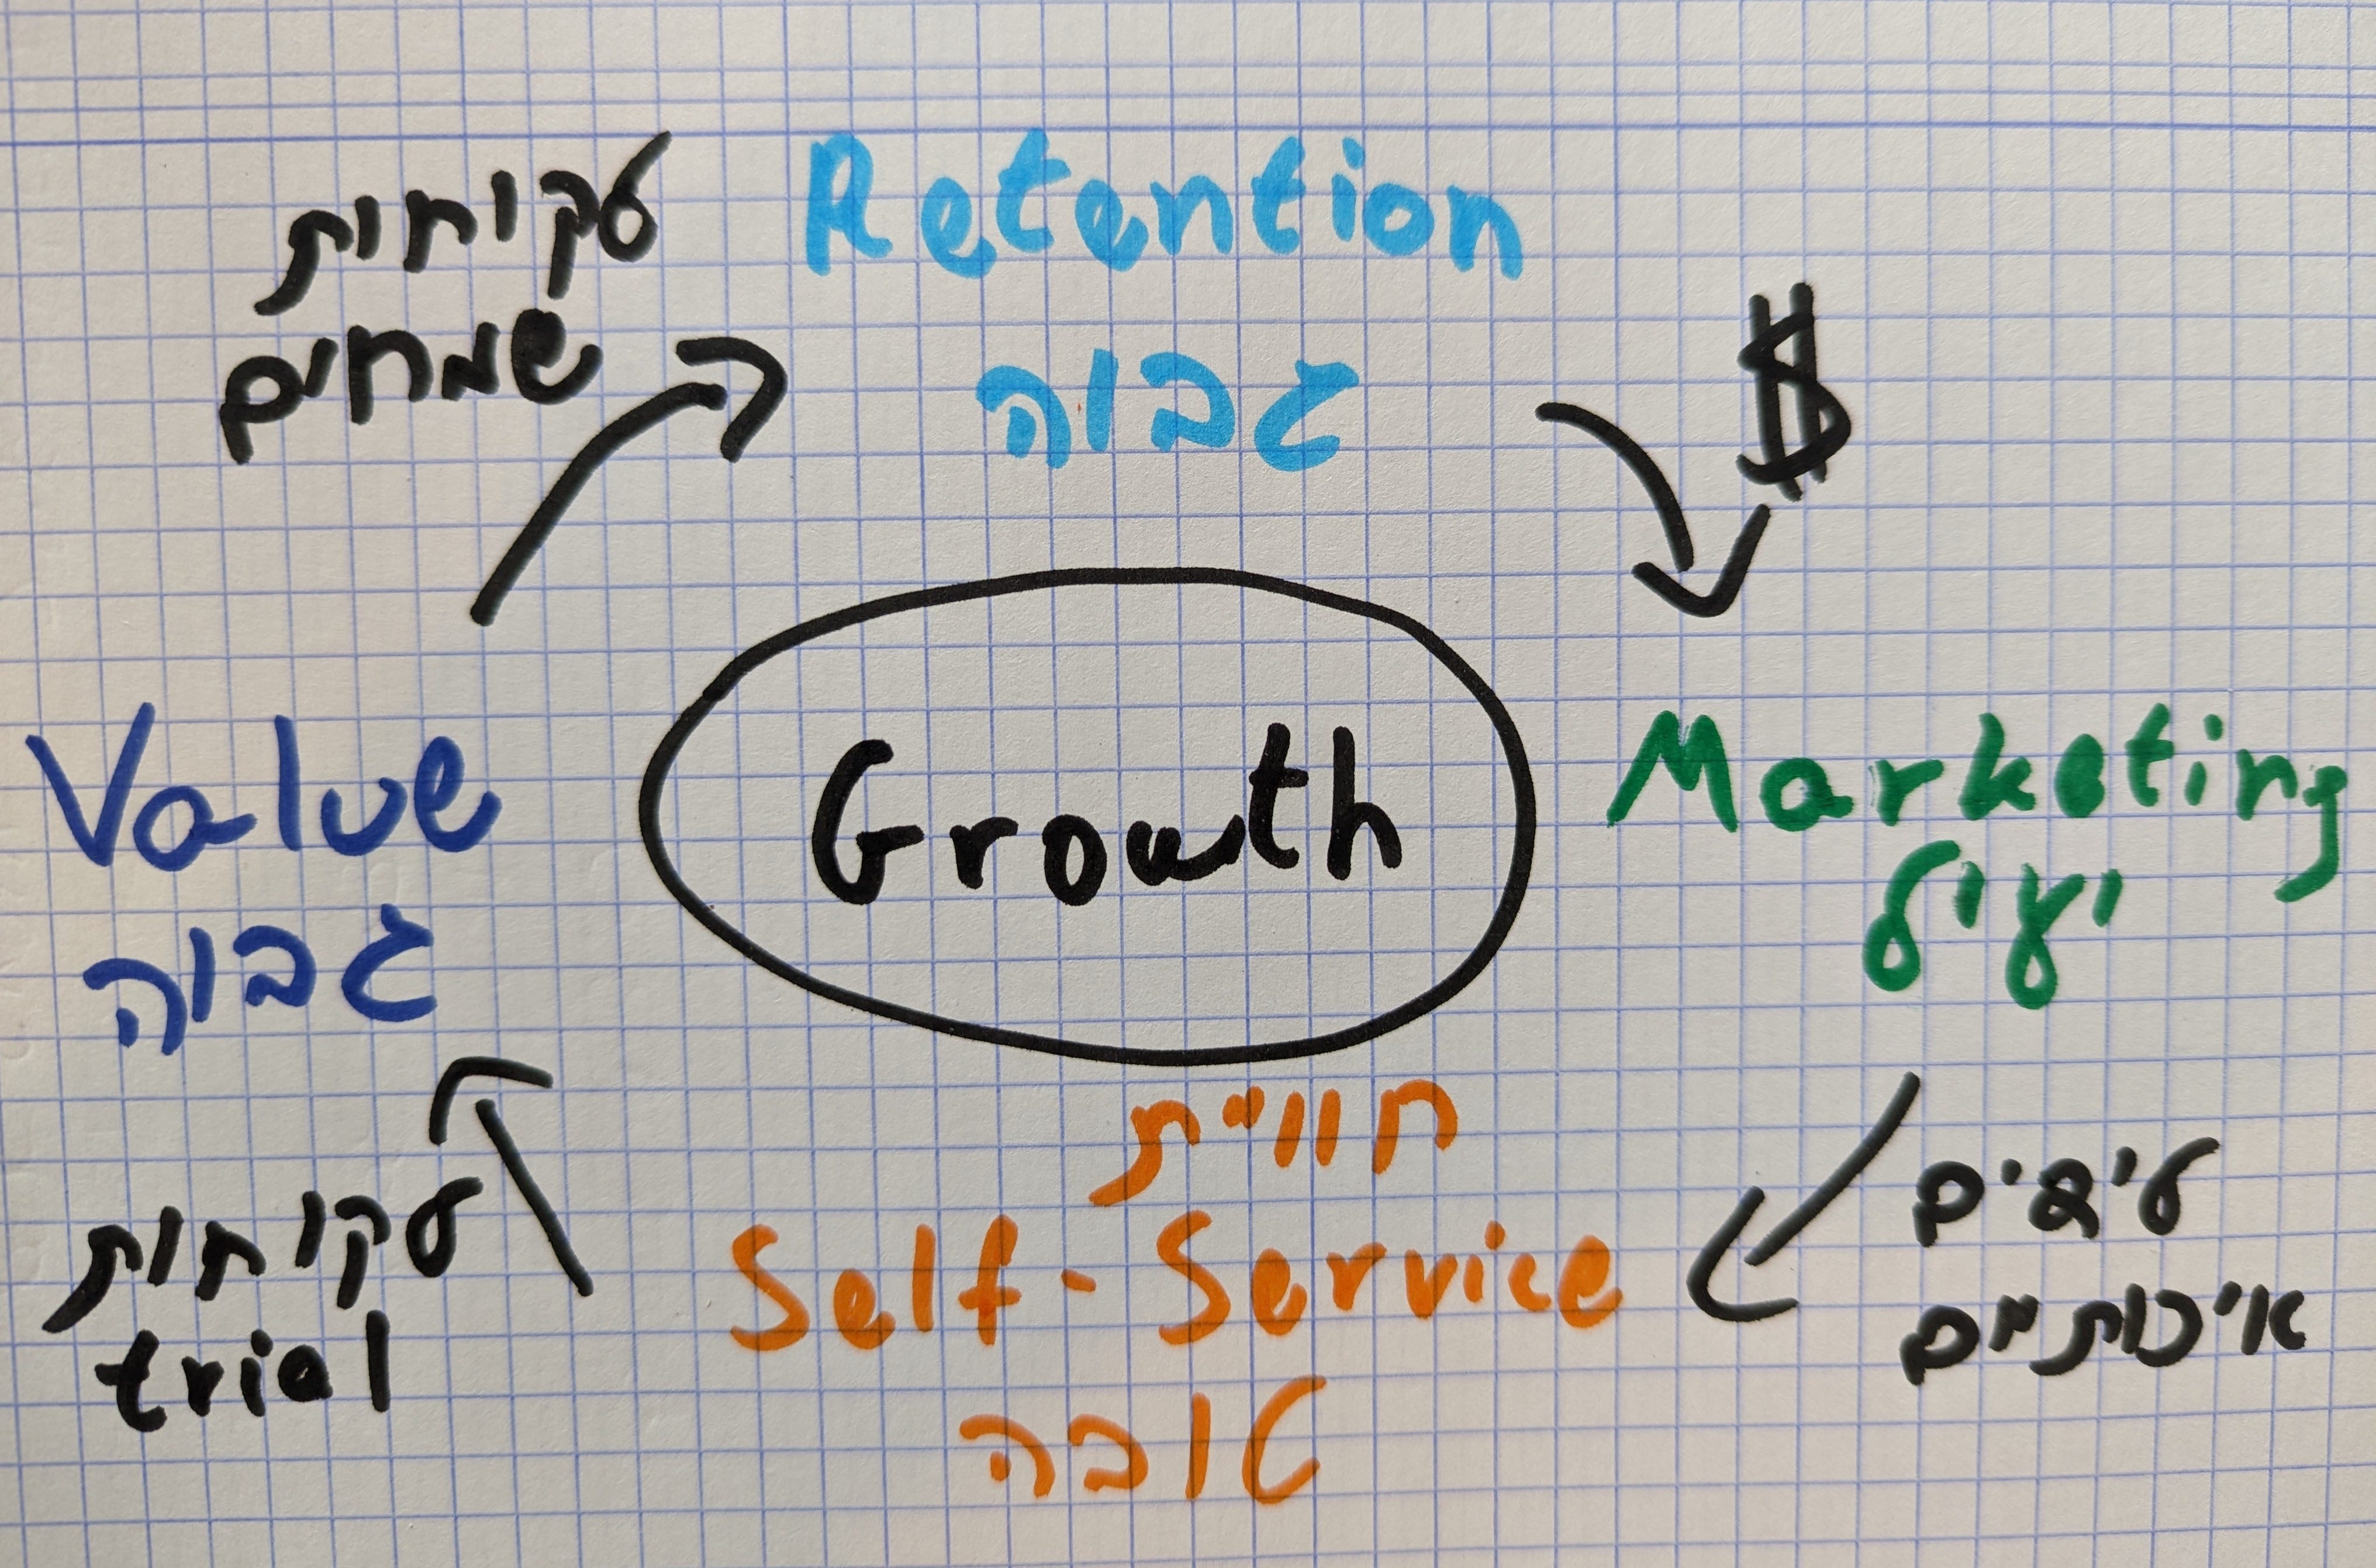 Retention
גבוה
$
Marketing
יעיל
לידים
איכותיים
חוויית
Self-Service
טובה
לקוחות
trial
Value
גבוה
לקוחות
שמחים
Growth